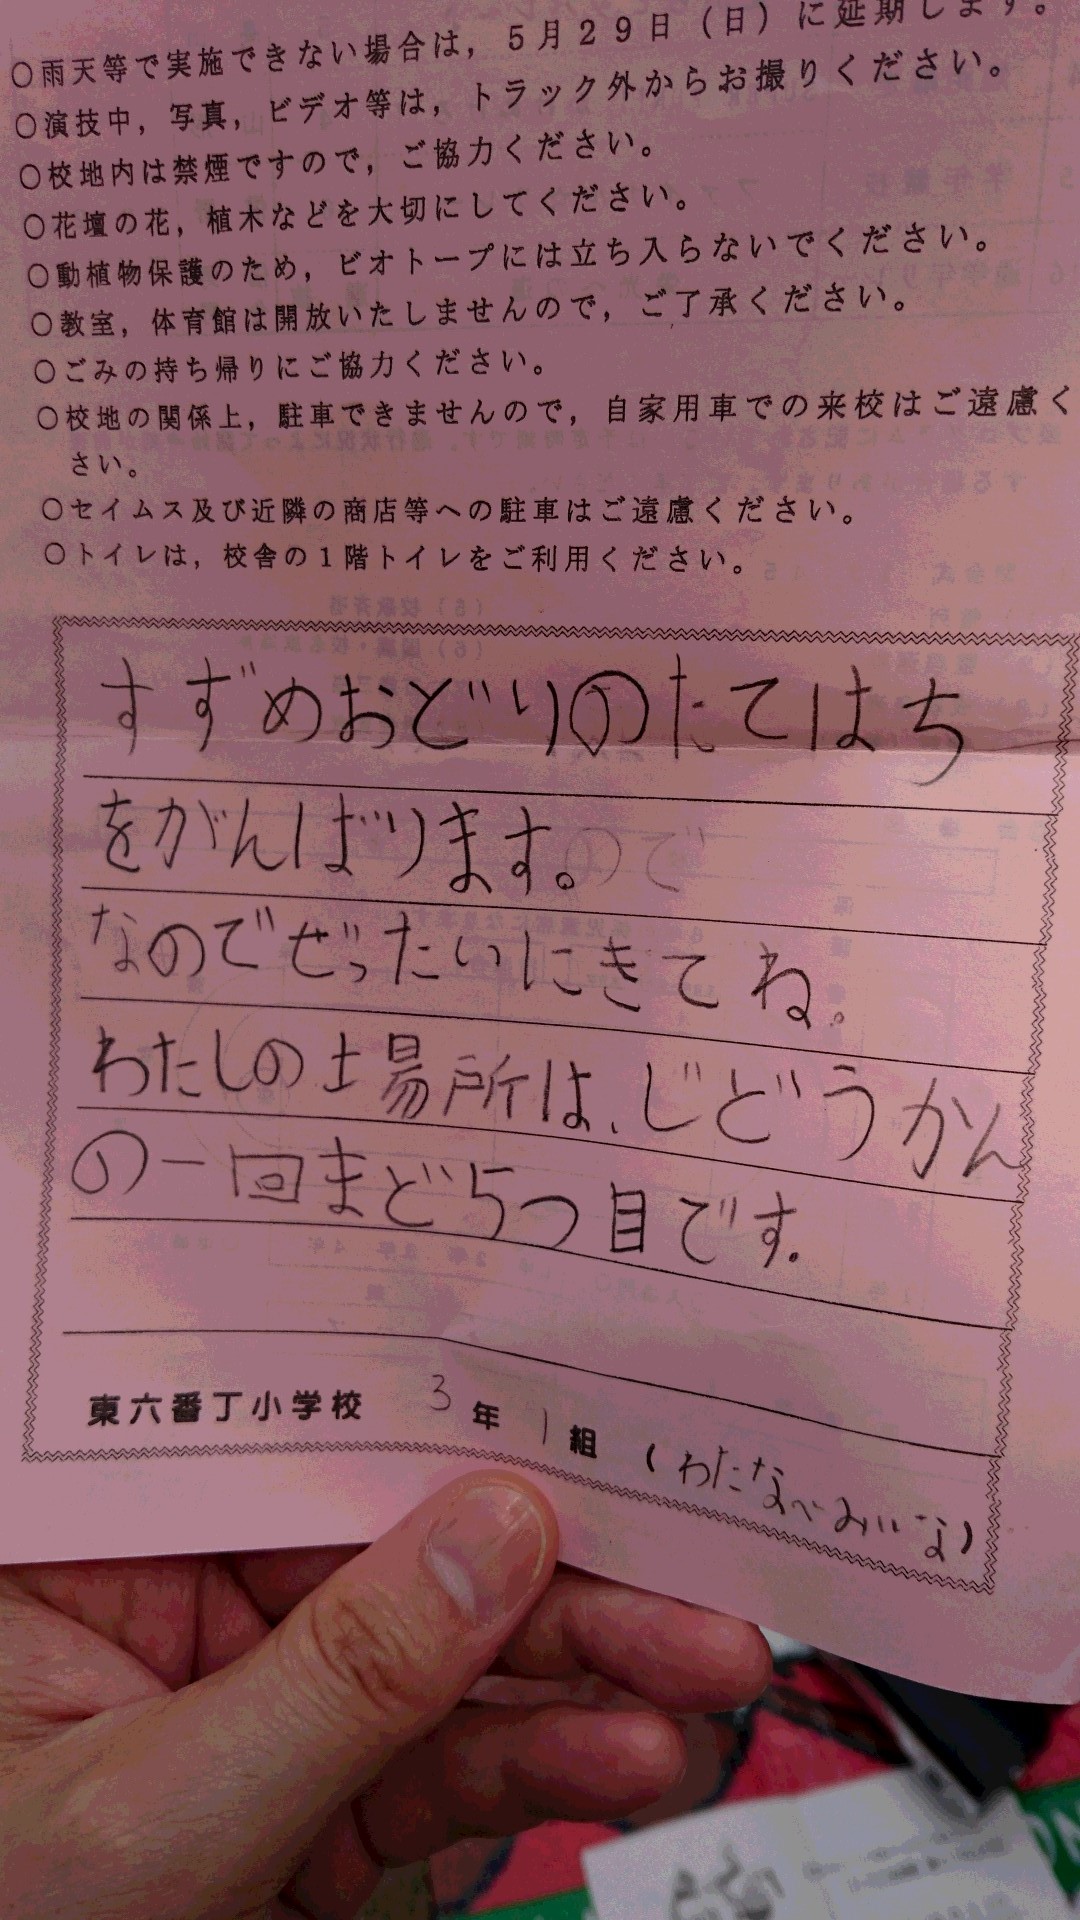 ○雨天等で実施できない場合は，５月２９日（日）に延期します。
○演技中，写真，ビデオ等は，トラック外からお撮りください。
○校地内は禁煙ですので，ご協力ください。
○花壇の花，植木などを大切にしてください。
○動植物保護のため，ビオトープには立ち入らないでください。
○教室，体育館は開放いたしませんので，ご了承ください。
○ごみの持ち帰りにご協力ください。
○校地の関係上，駐車できませんので，自家用車での来校はご遠慮く
さい。
○セイムス及び近隣の商店等への駐車はご遠慮ください。
○トイレは，校舎の１階トイレをご利用ください。
すずめおどりのたてはち
をがんばります。
なのでぜったいにきてね。
わたしの土場所は、じどうかん
の一回まど5つ目です。
東六番丁小学校 3年1組（わたなべみいな）